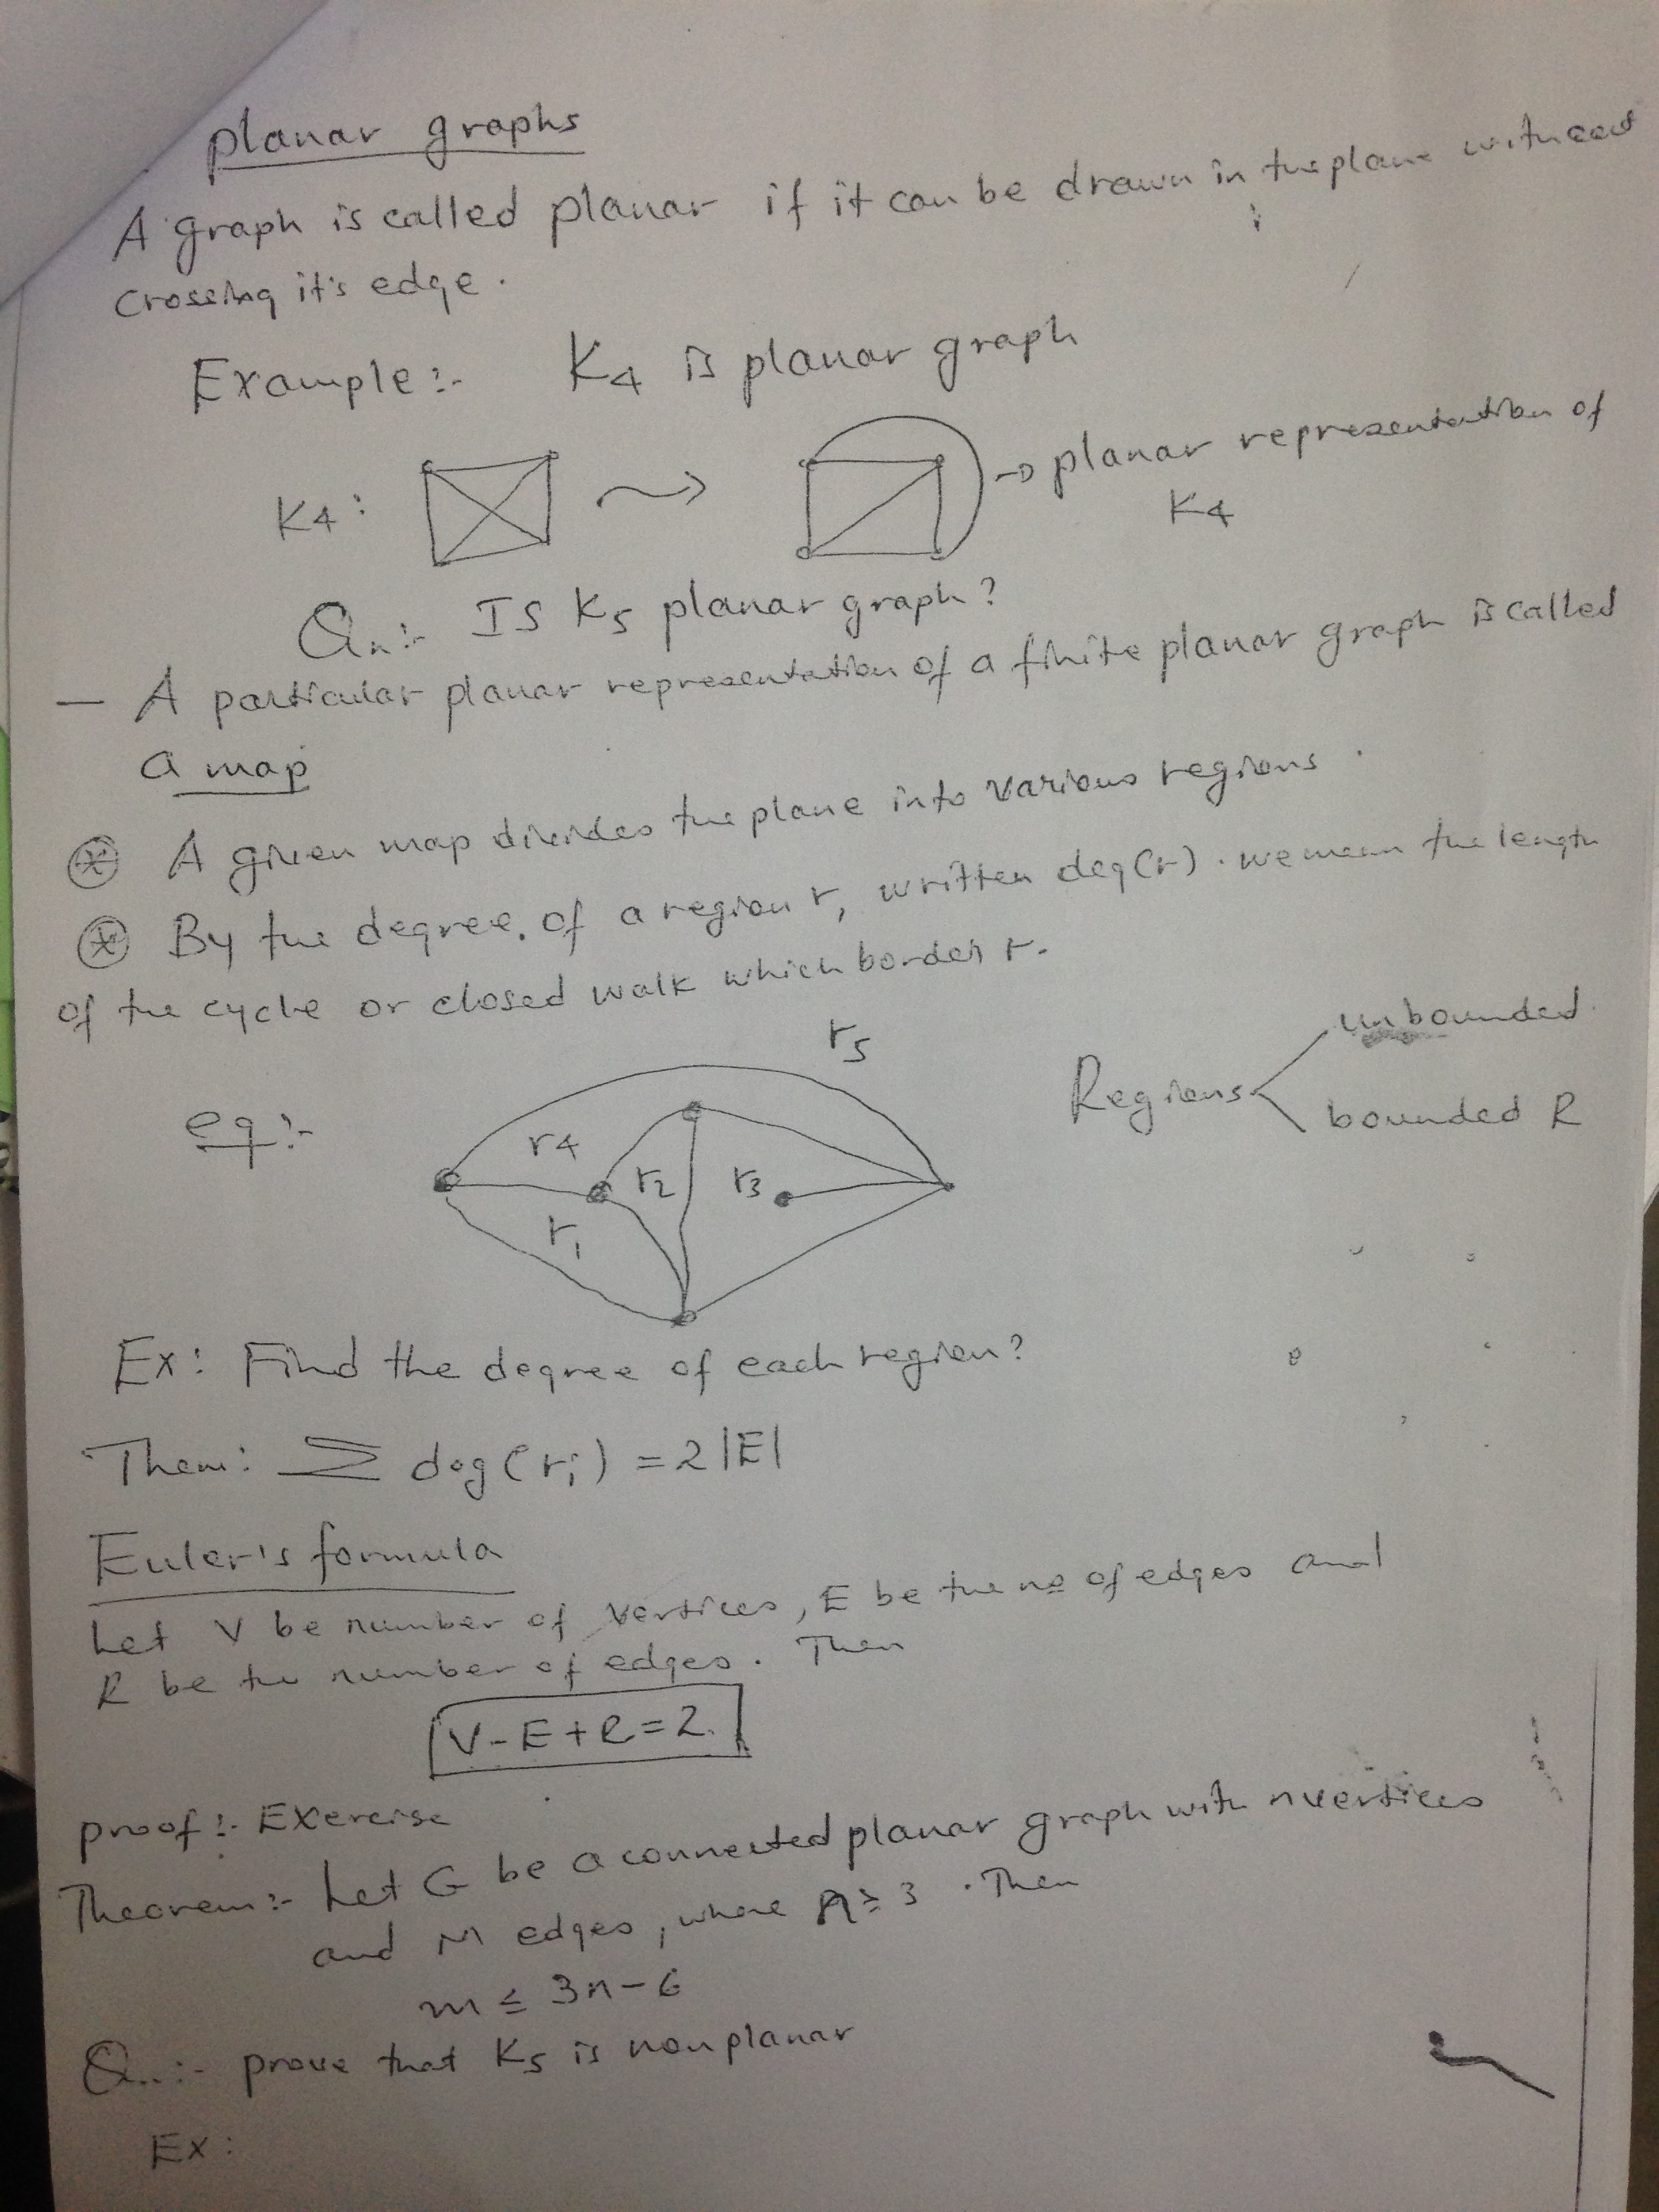 planar graphs
A graph is called planar if it can be drawn in the plane without
crossing it's edge.
Example:- K4 is planar graph
K4: → planar representation of
K4
Qn:- Is K5 planar graph?
— A particular planar representation of a finite planar graph is called
a map
⊛ A given map divides the plane into various regions.
⊛ By the degree of a region r, written deg(r). we mean the length
of the cycle or closed walk which borders r.
r5
Regions
unbounded
bounded R
eg:-
r4
r2
r3
r1
Ex: Find the degree of each region?
Them: Σ deg(ri) = 2|E|
Euler's formula
Let V be number of vertices, E be the no of edges and
R be the number of edges. Then
V-E+R=2.
proof:- Exercise
Theorem:- Let G be a connected planar graph with n vertices
and M edges, where n ≥ 3. Then
m ≤ 3n-6
Qn:- prove that K5 is nonplanar
Ex: